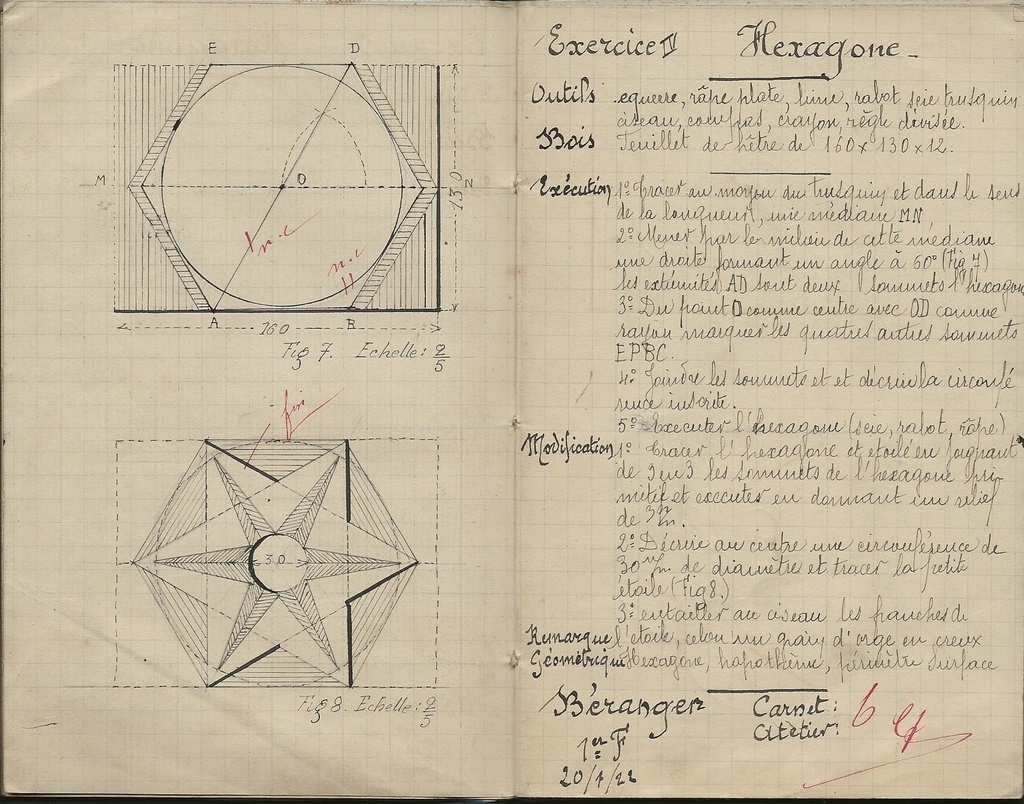 E D
M O N
130
n.c
n.c
A B
160
Fig 7. Echelle: 2/5
fini
30
Fig 8. Echelle: 2/5
Exercice IV Hexagone
Outils equerre, râpe plate, lime, rabot scie trusquin
ciseau, compas, crayon, règle divisée.
Bois Feuillet de hêtre de 160 x 130 x 12.
Exécution 1º Tracer au moyon du trusquin et dans le sens
de la longueur, une médiane MN
2º Mener par le milieu de cette médiane
une droite formant un angle à 60º (Fig 7)
les extrémités AD sont deux sommets l'hexagone
3º Du point O comme centre avec OD comme
rayon marquer les quatres autres sommets
EPBC.
4º Joindre les sommets et et décrire la circonfé
rence inscrite.
5º Executer l'hexagone (scie, rabot, râpe)
Modification 1º Tracer l'hexagone et etoilé en joignant
de 3 en 3 les sommets de l'hexagone pri-
mitif et executer en donnant un relief
de 3 m/m.
2º Décrire au centre une circonférence de
30 m/m de diamètre et tracer la petite
étoile (Fig 8.)
3º entailler au ciseau les branches de
Remarque l'étoile, celon un grain d'orge en creux
Géométrique Hexagone, hapothème, périmètre surface
Béranger Carnet: 6
Atelier:
1er F
20/1/22